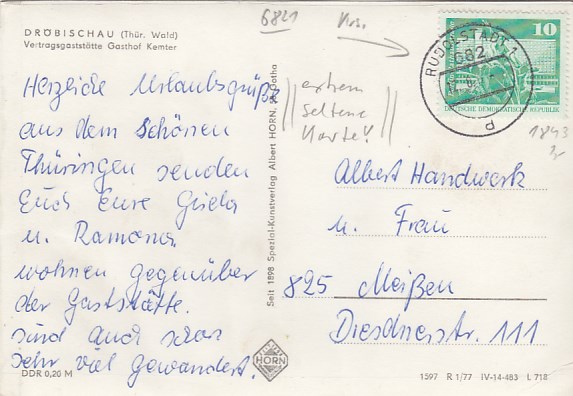 DRÖBISCHAU (Thür. Wald)
Vertragsgaststätte Gasthof Kemter
Herzliche Urlaubsgrüße
aus dem Schönen
Thüringen senden
Euch Eure Gisela
u. Ramona,
wohnen gegenüber
der Gaststätte.
sind auch schon
sehr viel gewandert.
DDR 0,20 M
Seit 1898 Spezial-Kunstverlag Albert HORN, Gotha
HORN
6821
extrem
seltene
Karte!
RUDOLSTADT 1
682
d
10
DEUTSCHE DEMOKRATISCHE REPUBLIK
1843
Albert Handwerk
u. Frau
825 Meißen
Dresdnerstr. 111
1597 R 1/77 IV-14-483 L 718